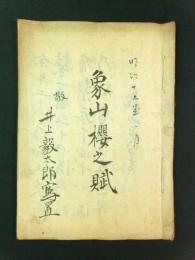 明治十五年 月
象山櫻之賦
井上毅太郎寫置